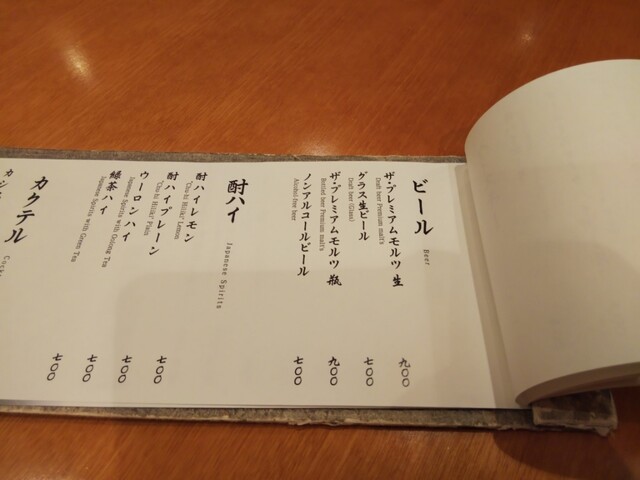 ビール
Beer
ザ・プレミアムモルツ 生
Draft beer Premium malt's
九〇〇
グラス生ビール
Draft beer (Glass)
七〇〇
ザ・プレミアムモルツ 瓶
Bottled beer Premium malt's
九〇〇
ノンアルコールビール
Alcohol-free beer
七〇〇
酎ハイ
Japanese Spirits
酎ハイレモン
"Chu-hi HiBiki" Lemon
七〇〇
酎ハイプレーン
"Chu-hi HiBiki" Plain
七〇〇
ウーロンハイ
Japanese Spirits with Oolong Tea
七〇〇
緑茶ハイ
Japanese Spirits with Green Tea
七〇〇
カクテル